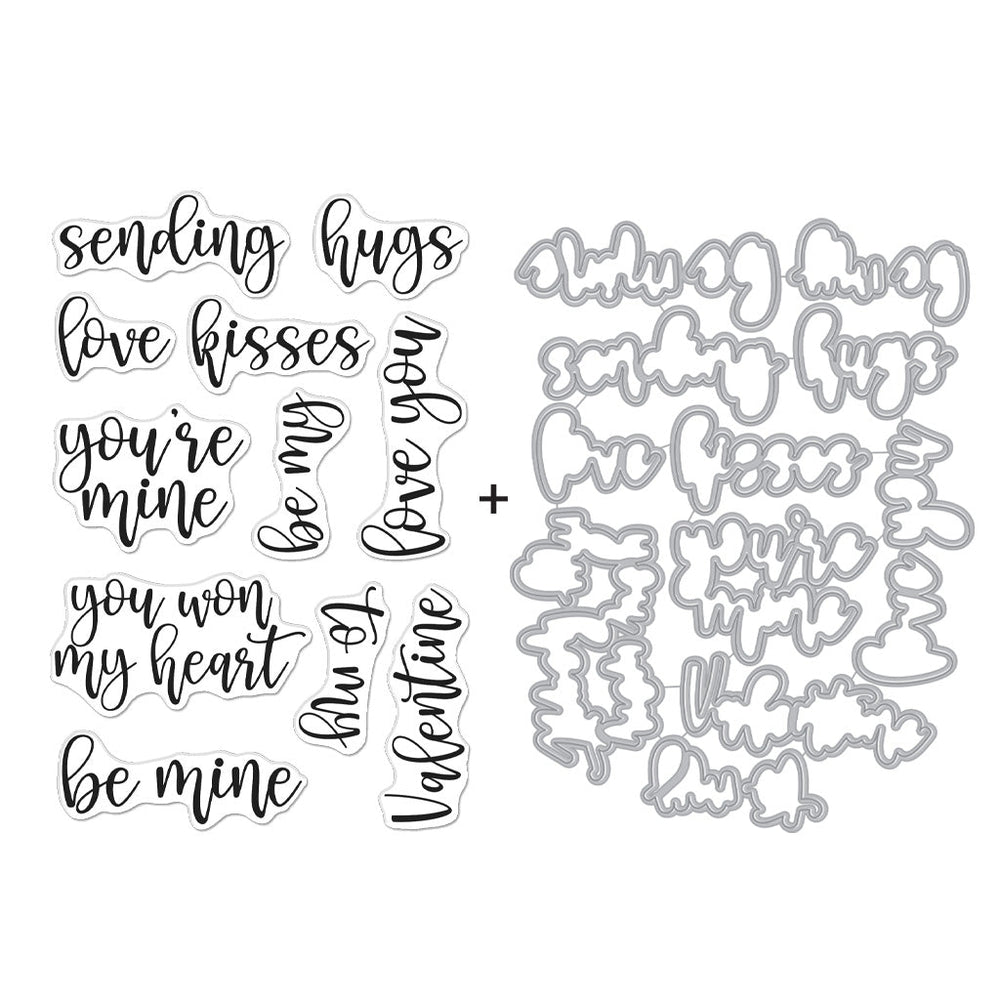 sending
hugs
love
kisses
love you
you're
mine
be my
+
you won
my heart
to my
Valentine
be mine